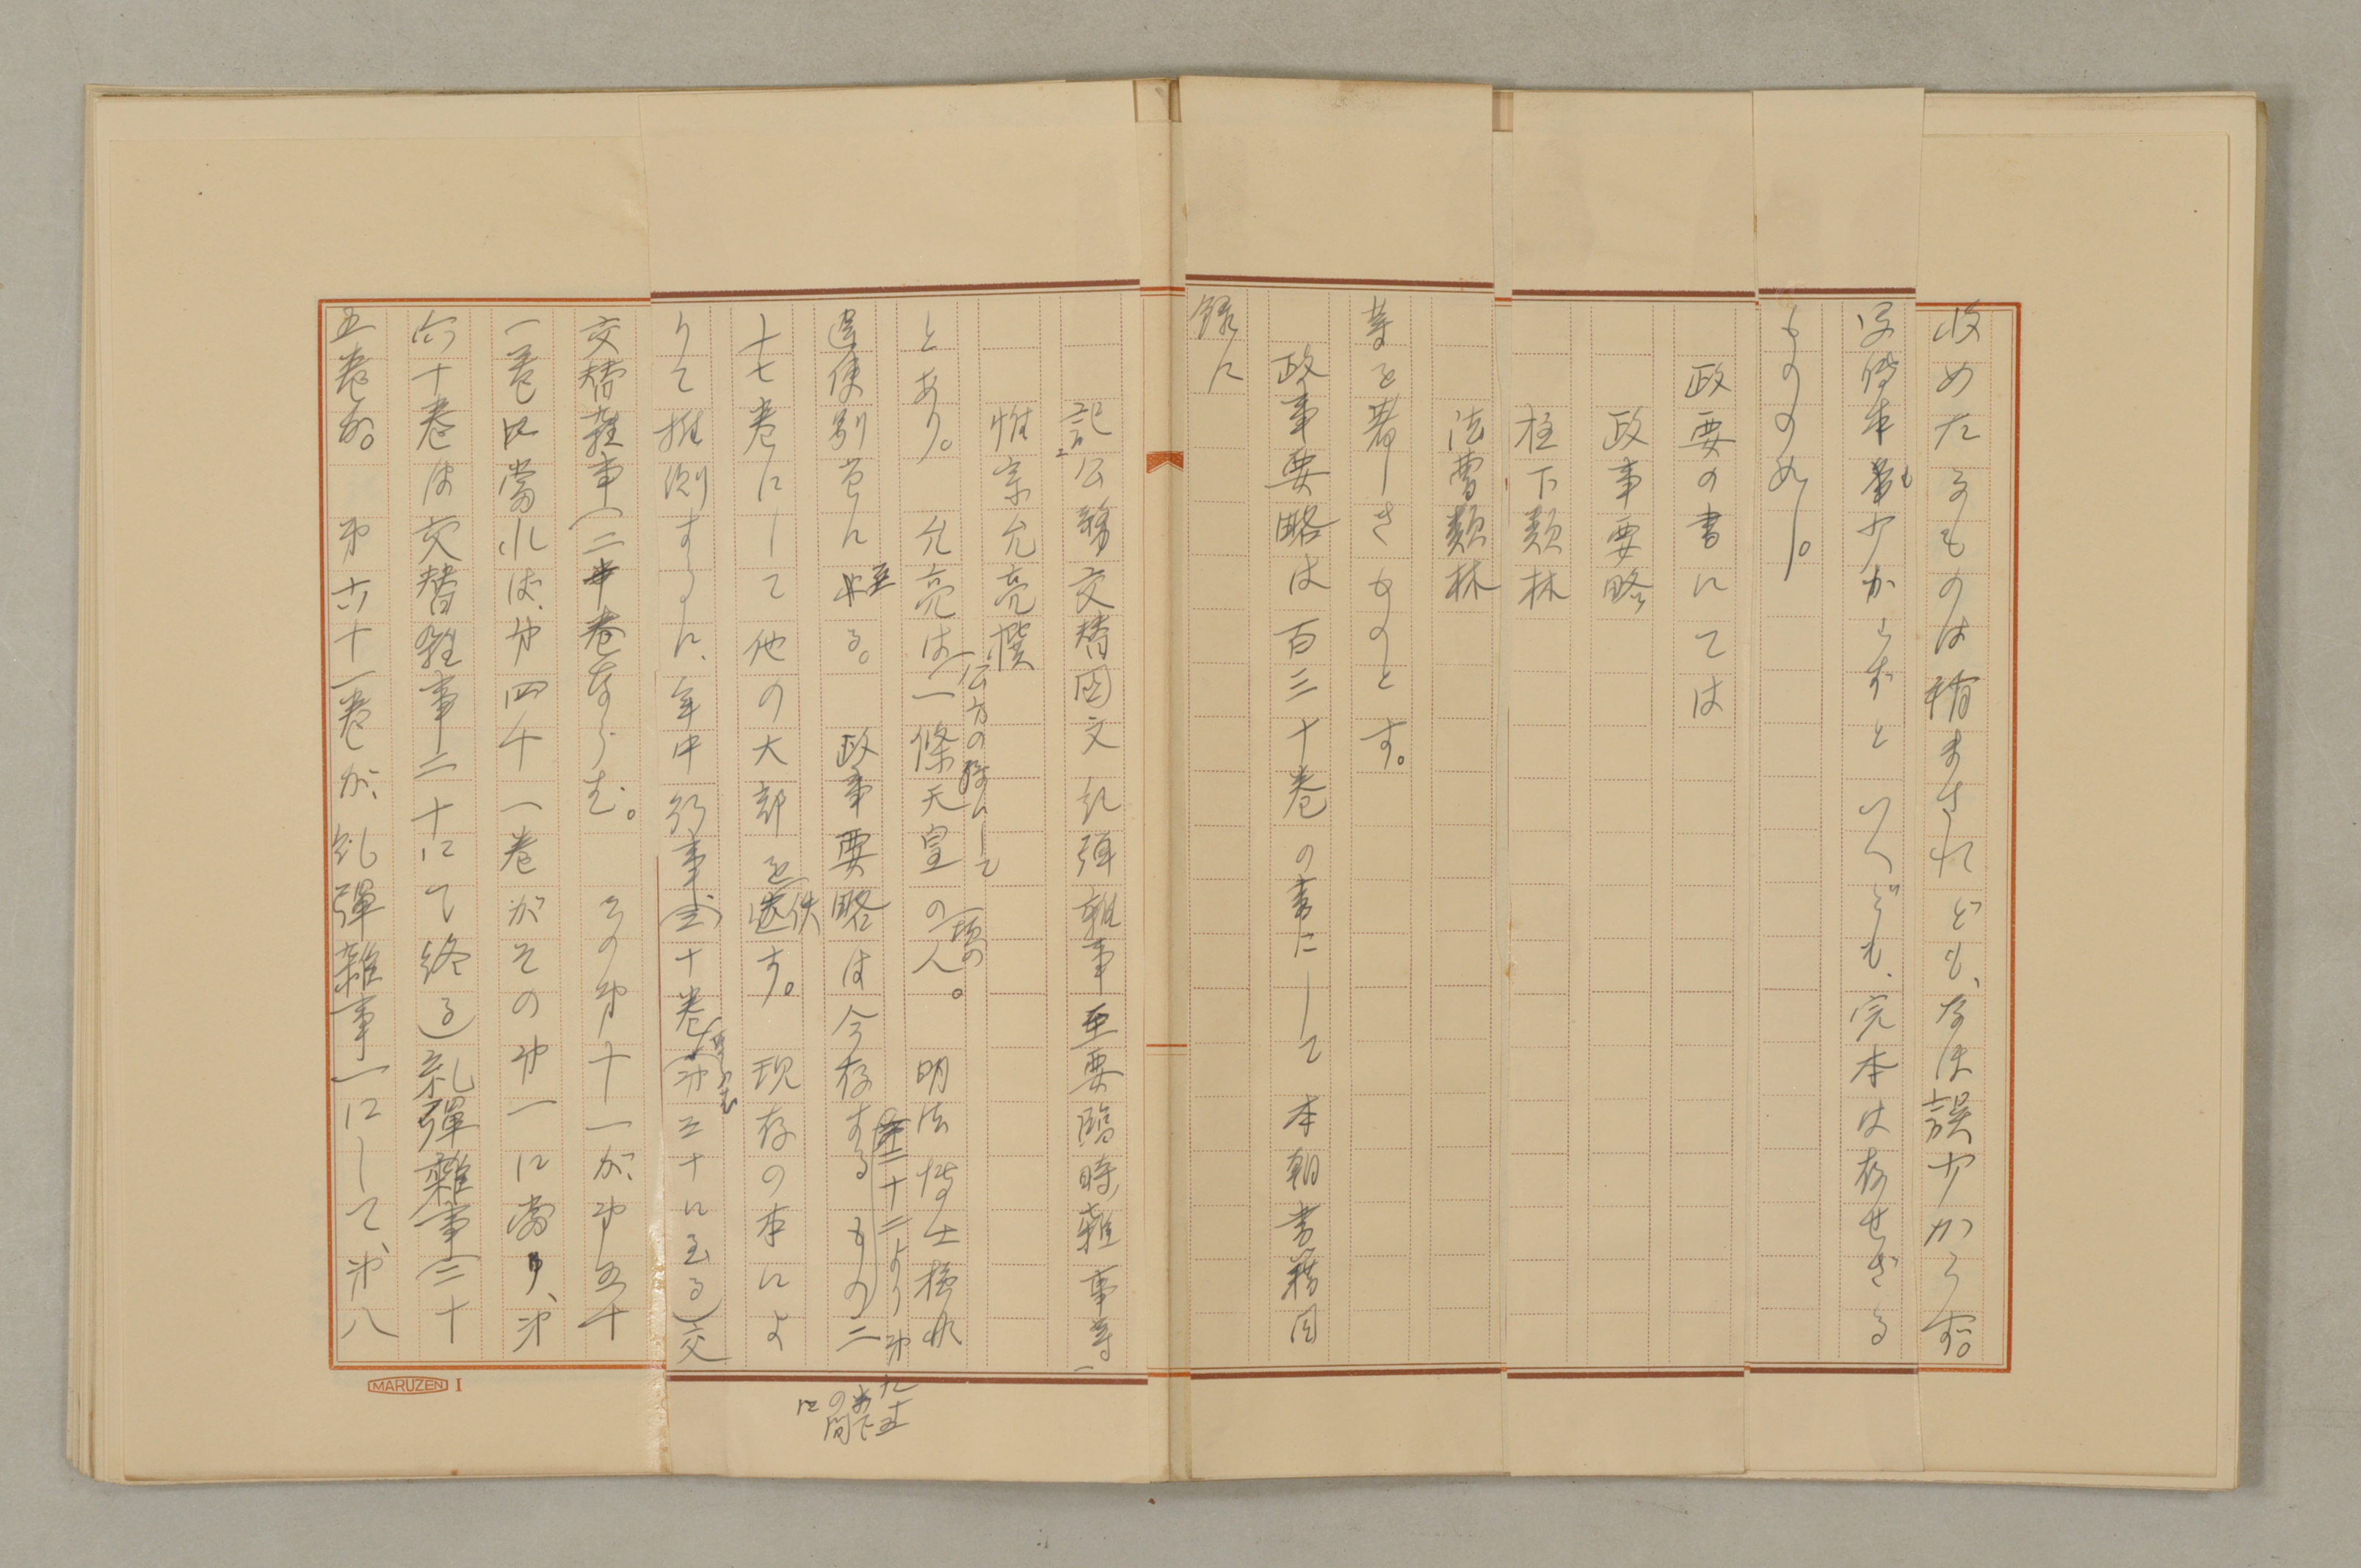 收めたるものは稍まされども、なほ誤少からず。
写傳本も少からずといへども、完本は存せざる
ものの如し。
政要の書にては
政事要略
柱下類林
法曹類林
等を著しきものとす。
政事要略は百三十巻の書にして本朝書籍目
録に
記公務交替国文糺弾雑事至要臨時雑事等、
惟宗允亮撰
とあり。允亮は一條天皇の頃の人。明法博士検非
公方の孫にして
違使別当に至る。政事要略は今存するもの二
第二十二より第九十五
あ下
の間
に
十七巻にして他の大部を佚す。現存の本によ
りて推測するに、年中行事三十巻(第三十に至る)交
交替雑事(二十巻ならむ。その第十一が第五十
一巻に當れば、第四十一巻がその第一に當り、第
六十巻は交替雑事二十にて終る)糺彈雜事(二十
五巻か。第六十一巻が、糺彈雜事一にして、第八
MARUZEN I